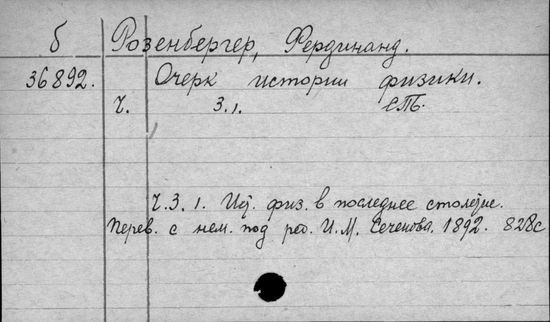 б Розенбергер, Фердинанд.
36892. Очерк истории физики.
Ч. 3.1. СПб.
Ч.3.1. Ист. физ. в последнее столетие.
Перев. с нем. под ред. И.М. Сеченова. 1892. 828с